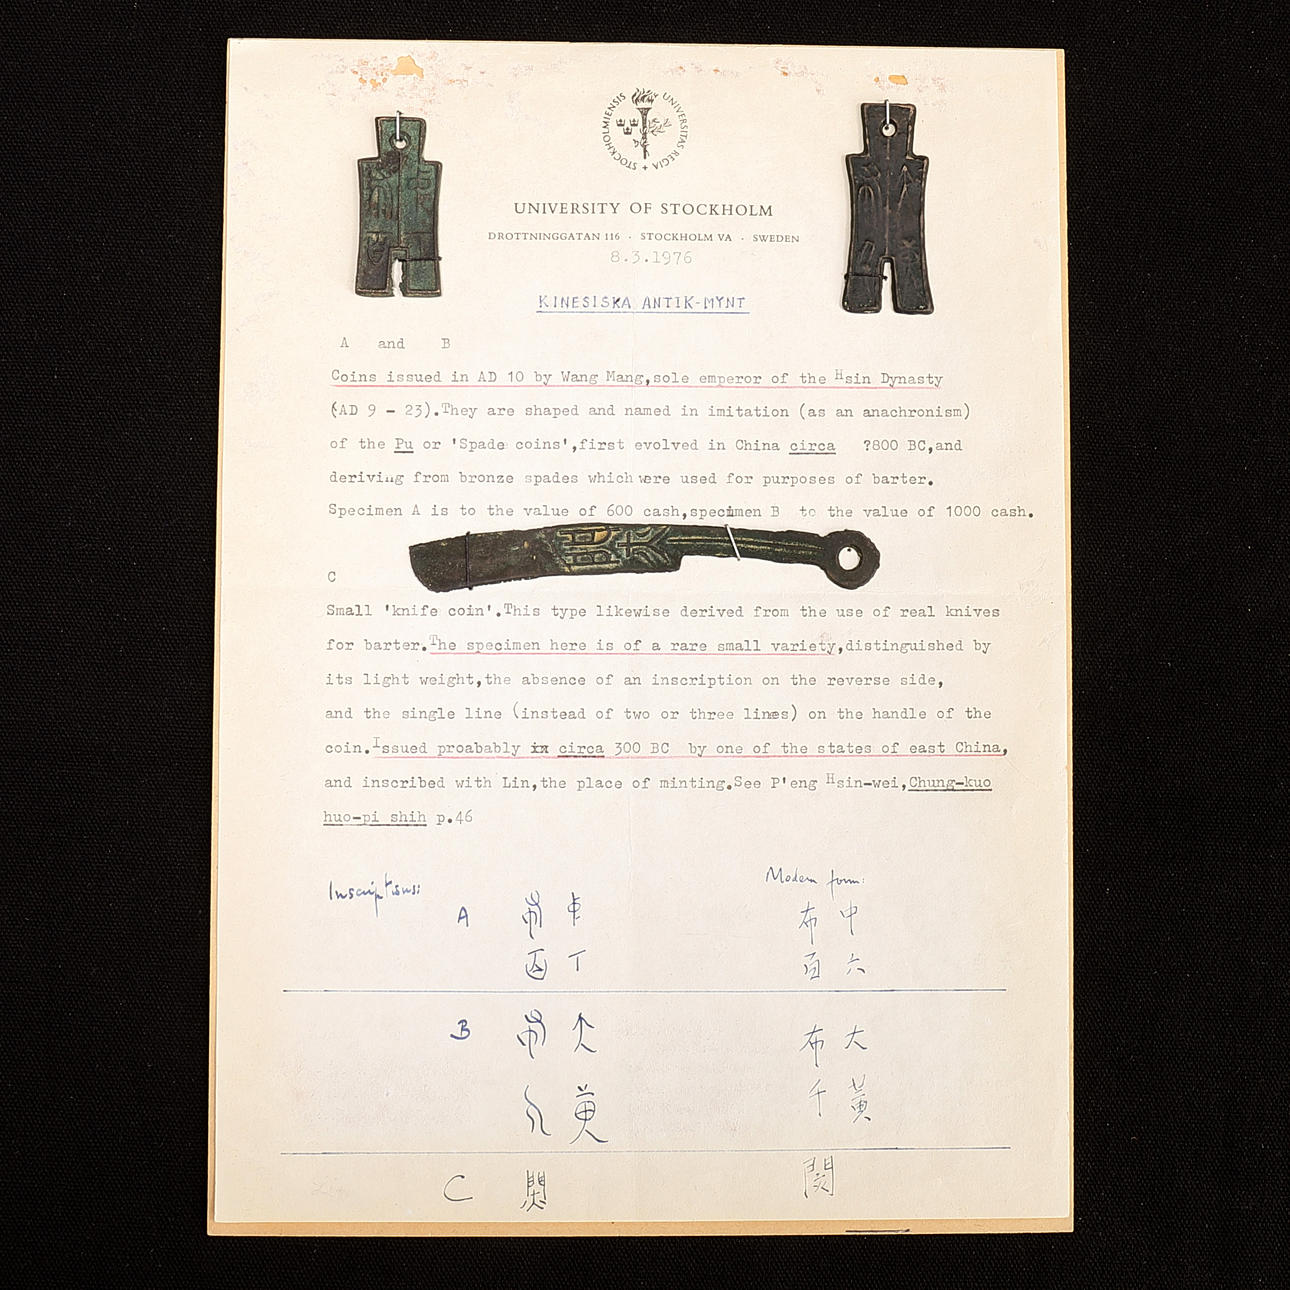 STOCKHOLMIENSIS UNIVERSITAS REGIA
UNIVERSITY OF STOCKHOLM
DROTTNINGGATAN 116 · STOCKHOLM VA · SWEDEN
8.3.1976
KINESISKA ANTIK-MYNT
A and B
Coins issued in AD 10 by Wang Mang,sole emperor of the Hsin Dynasty
(AD 9 - 23).They are shaped and named in imitation (as an anachronism)
of the Pu or 'Spade coins',first evolved in China circa ?800 BC,and
deriving from bronze spades which were used for purposes of barter.
Specimen A is to the value of 600 cash,specimen B to the value of 1000 cash.
C
Small 'knife coin'.This type likewise derived from the use of real knives
for barter.The specimen here is of a rare small variety,distinguished by
its light weight,the absence of an inscription on the reverse side,
and the single line (instead of two or three lines) on the handle of the
coin.Issued proabably in circa 300 BC by one of the states of east China,
and inscribed with Lin,the place of minting.See P'eng Hsin-wei,Chung-kuo
huo-pi shih p.46
Inscriptions: Modern form:
A 布 中
百 六
B 布 大
千 黃
C